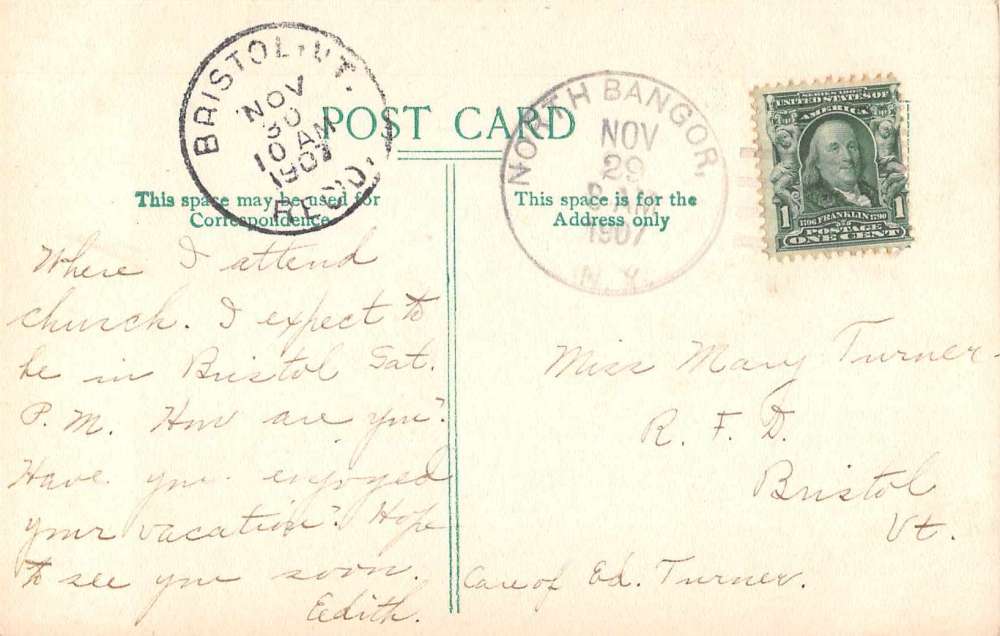 BRISTOL, VT.
NOV
30
10 AM
1907
REC'D.
POST CARD
NORTH BANGOR,
NOV
29
8 AM
1907
N. Y.
SERIES 1902
UNITED STATES OF
AMERICA
1 1
1706 FRANKLIN 1790
POSTAGE
ONE CENT
This space may be used for
Correspondence
This space is for the
Address only
Where I attend
church. I expect to
be in Bristol Sat.
P. M. How are you?
Have you enjoyed
your vacation? Hope
to see you soon.
Edith.
Miss Mary Turner
R. F. D.
Bristol
Vt.
Care of Ed. Turner.